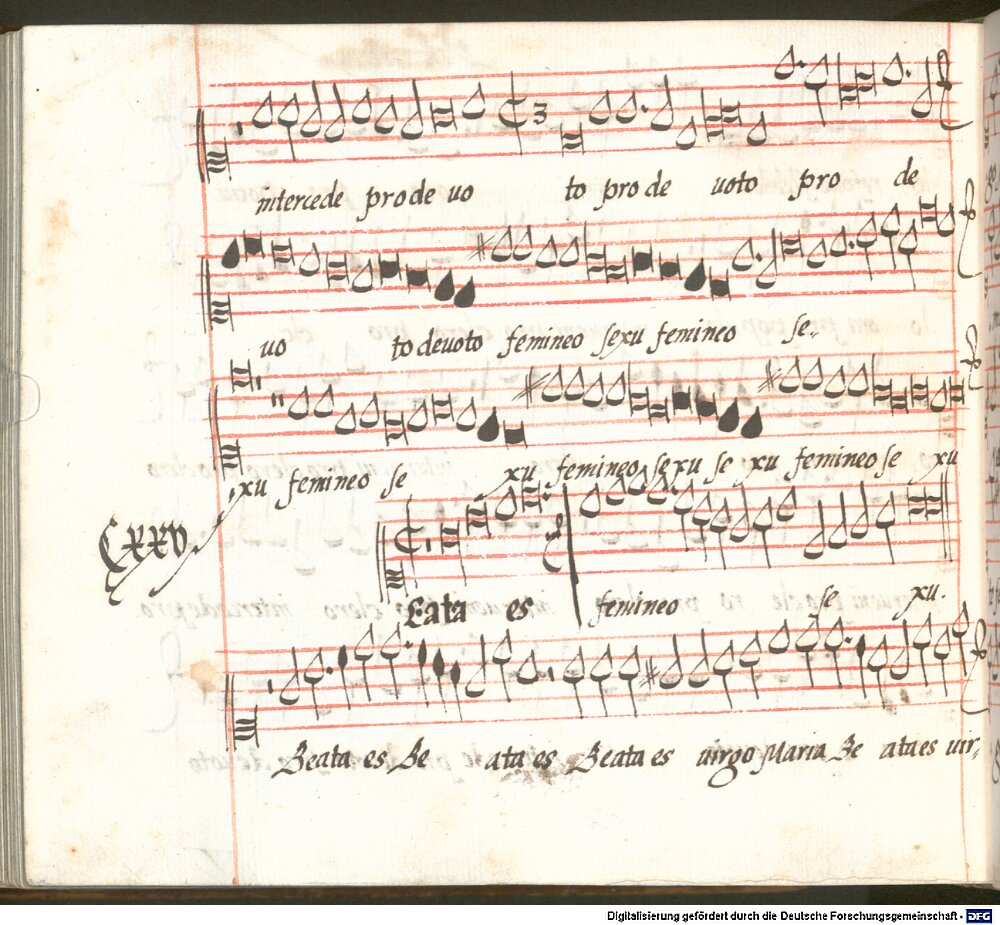 3
intercede pro de uo to pro de uoto pro de
uo to deuoto femineo sexu femineo se
xu femineo se xu femineo sexu se xu femineo se xu
CXXV.
Eata es femineo se xu.
Beata es Be ata es Beata es uirgo Maria Be ata es uir
Digitalisierung gefördert durch die Deutsche Forschungsgemeinschaft - DFG